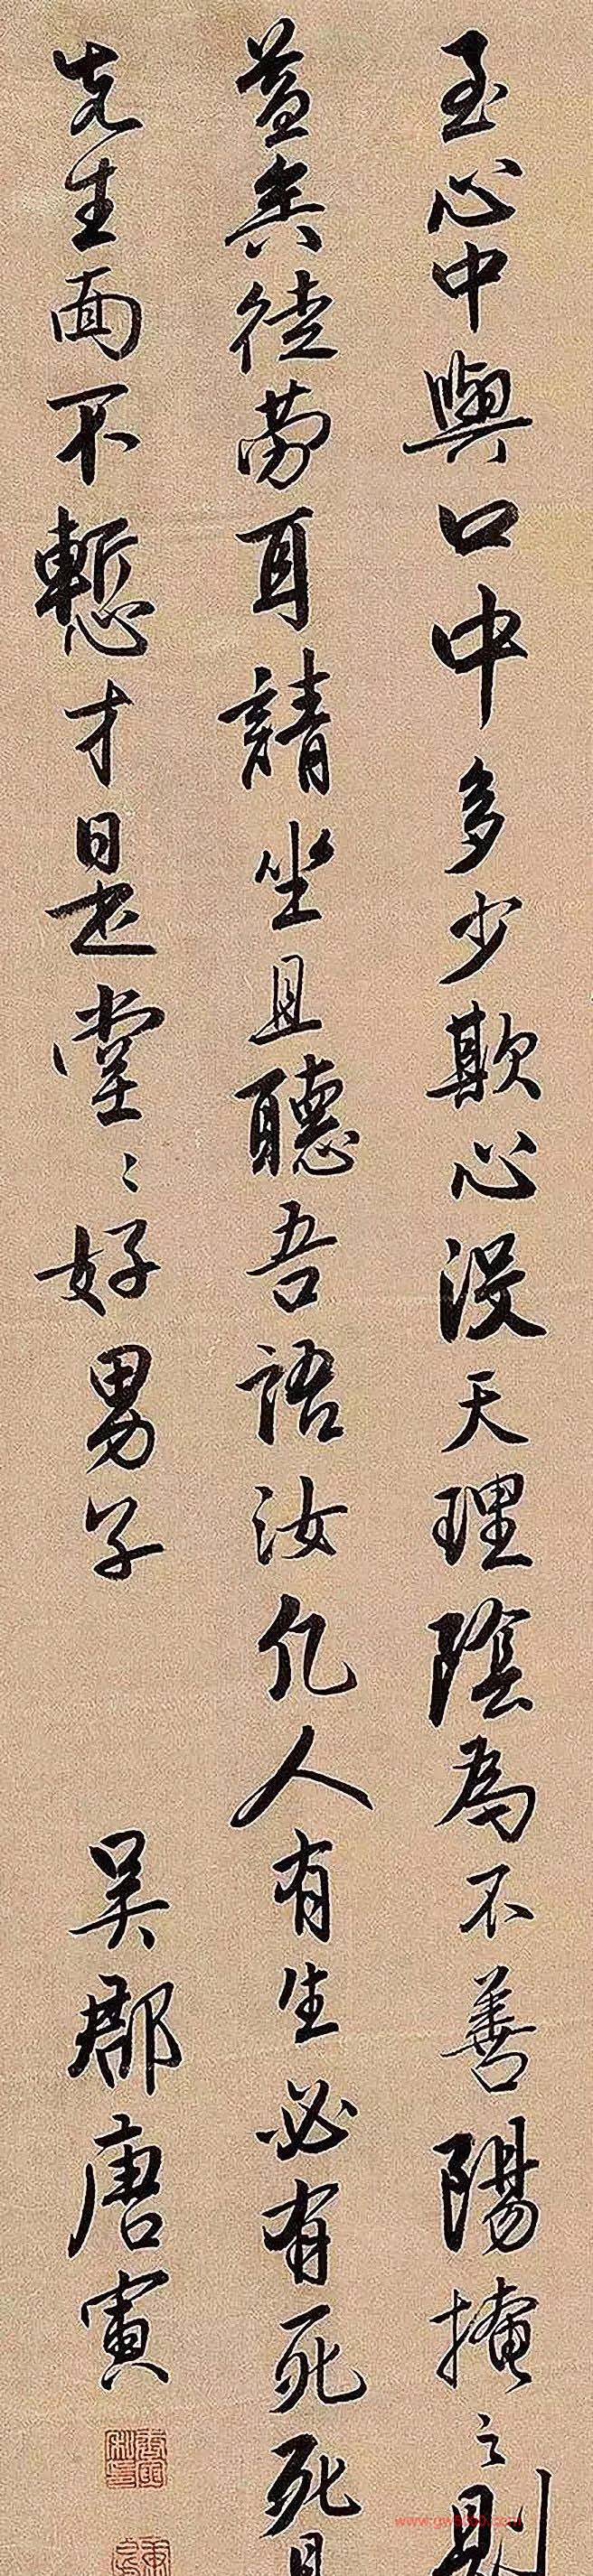 至心中與口中多少欺心沒天理陰為不善陽掩之則
益矣徒勞耳請坐且聽吾語汝凡人有生必有死死見
先生面不慙才是堂〻好男子
吳郡唐寅